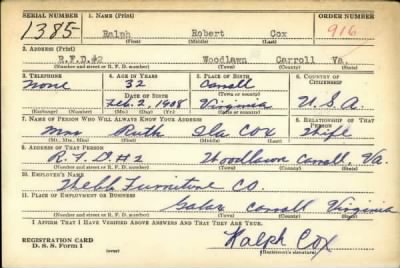 SERIAL NUMBER 1. NAME (Print) ORDER NUMBER
1385 Ralph Robert Cox 916
(First) (Middle) (Last)
2. ADDRESS (Print)
R.F.D.#2 Woodlawn Carroll Va.
(Number and street or R. F. D. number) (Town) (County) (State)
3. TELEPHONE 4. AGE IN YEARS 5. PLACE OF BIRTH 6. COUNTRY OF
CITIZENSHIP
None 32 Carroll
(Town or county)
DATE OF BIRTH
Feb. 2, 1908 Virginia U.S.A.
(Exchange) (Number) (Mo.) (Day) (Yr.) (State or country)
7. NAME OF PERSON WHO WILL ALWAYS KNOW YOUR ADDRESS 8. RELATIONSHIP OF THAT
PERSON
Mrs Ruth Cox Wife
(Mr., Mrs., Miss) (First) (Middle) (Last)
9. ADDRESS OF THAT PERSON
R.F.D #2 Woodlawn Carroll, Va.
(Number and street or R. F. D. number) (Town) (County) (State)
10. EMPLOYER'S NAME
Webb Furniture Co.
11. PLACE OF EMPLOYMENT OR BUSINESS
Galax Carroll Virginia
(Number and street or R. F. D. number) (Town) (County) (State)
I AFFIRM THAT I HAVE VERIFIED ABOVE ANSWERS AND THAT THEY ARE TRUE.
REGISTRATION CARD
D. S. S. Form 1
Ralph Cox
(Registrant's signature)